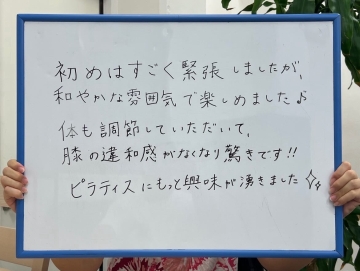 初めはすごく緊張しましたが、
和やかな雰囲気で楽しめました♪
体も調節していただいて、
膝の違和感がなくなり驚きです!!
ピラティスにもっと興味が湧きました✨